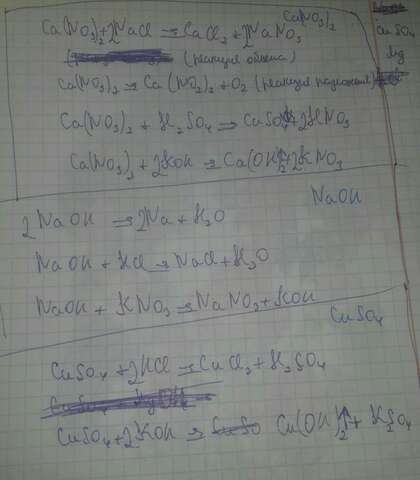 Ca(NO₃)₂
Ca(NO₃)₂+2NaCl ⇒ CaCl₂ + 2NaNO₃
(реакция обмена)
Ca(NO₃)₂ ⇒ Ca(NO₂)₂ + O₂ (реакция разложения)
Ca(NO₃)₂ + H₂SO₄ ⇒ CuSO₄+2HNO₃
Ca(NO₃)₂ + 2KOH ⇒ Ca(OH)₂+2KNO₃
CuSO₄
NaOH
2NaOH ⇒ 2Na + H₂O
NaOH + HCl ⇒ NaCl + H₂O
NaOH + KNO₃ ⇒ NaNO₃+KOH
CuSO₄
CuSO₄ +2HCl ⇒ CuCl₂ + H₂SO₄
CuSO₄+2KOH ⇒ CuSO Cu(OH)₂↑+ K₂SO₄